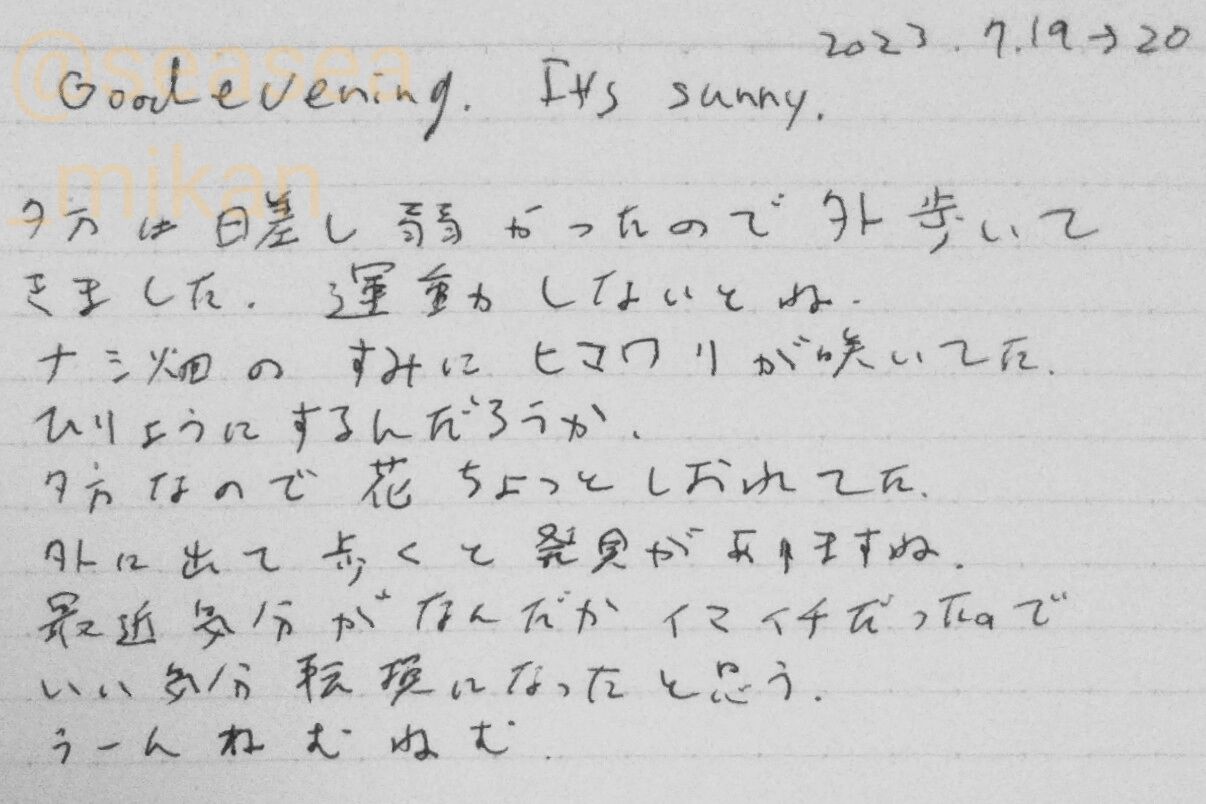 2023.7.19→20
@seasea
Good evening. It's sunny.
_mikan
夕方は日差し弱かったので外歩いて
きました. 運動しないとね.
ナシ畑のすみにヒマワリが咲いてた.
ひりょうにするんだろうか.
夕方なので花ちょっとしおれてた.
外に出て歩くと発見がありますね.
最近気分がなんだかイマイチだったので
いい気分転換になったと思う.
うーんねむねむ.